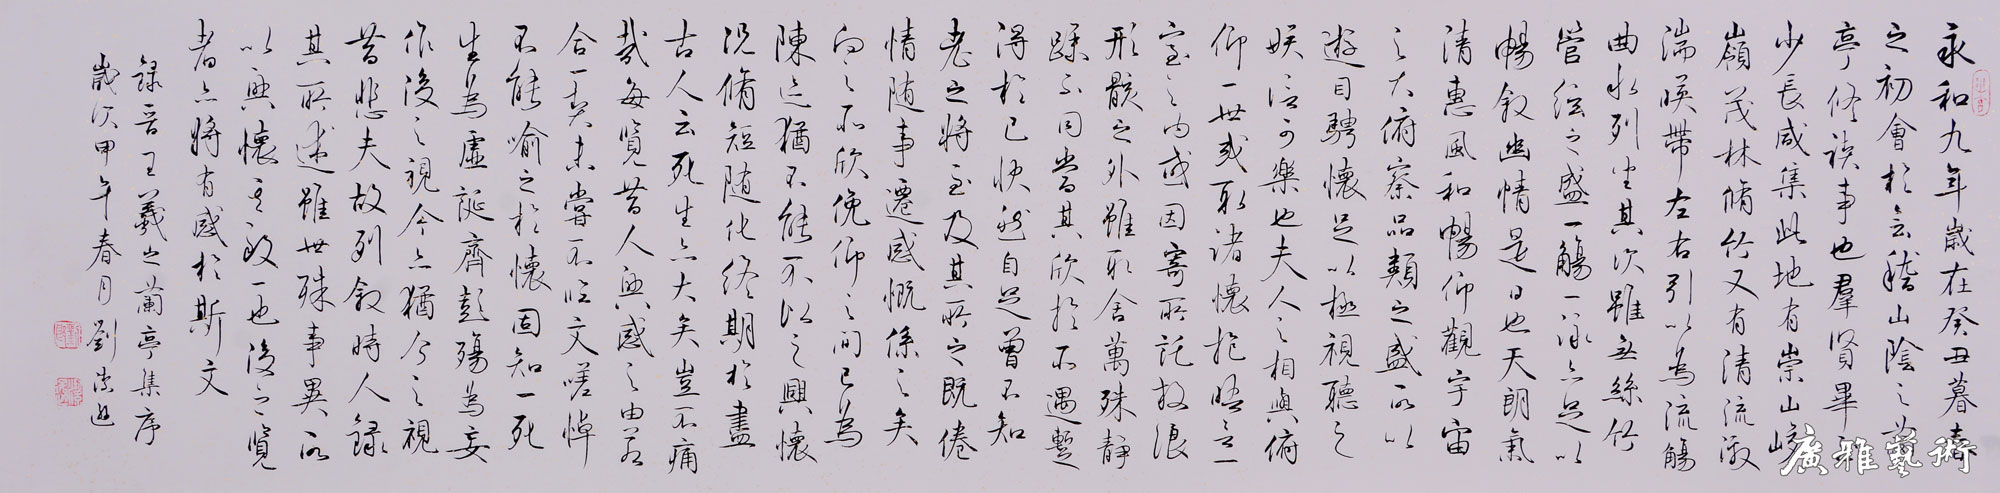 永和九年歲在癸丑暮春
之初會於會稽山陰之蘭
亭修禊事也羣賢畢至
少長咸集此地有崇山峻
嶺茂林脩竹又有清流激
湍暎帶左右引以為流觴
曲水列坐其次雖無絲竹
管絃之盛一觴一詠亦足以
暢敘幽情是日也天朗氣
清惠風和暢仰觀宇宙
之大俯察品類之盛所以
遊目騁懷足以極視聽之
娛信可樂也夫人之相與俯
仰一世或取諸懷抱悟言一
室之內或因寄所託放浪
形骸之外雖取舍萬殊靜
躁不同當其欣於所遇暫
得於己快然自足曾不知
老之將至及其所之既倦
情隨事遷感慨係之矣
向之所欣俛仰之間已為
陳迹猶不能不以之興懷
況脩短隨化終期於盡
古人云死生亦大矣豈不痛
哉每覽昔人興感之由若
合一契未嘗不臨文嗟悼
不能喻之於懷固知一死
生為虛誕齊彭殤為妄
作後之視今亦猶今之視
昔悲夫故列敘時人錄
其所述雖世殊事異所
以興懷其致一也後之覽
者亦將有感於斯文
錄晉王羲之蘭亭集序
歲次甲午春月劉
廣雅藝術